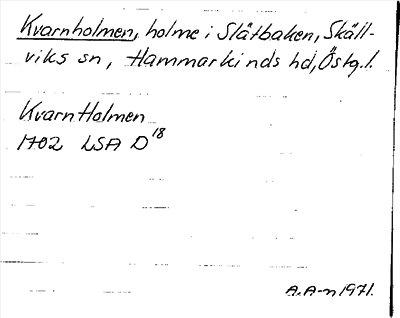 Kvarnholmen, holme i Slätbaken, Skäll-
viks sn, Hammarkinds hd, Östg.l.
KvarnHolmen
1702 LSA D 18
A.A-n 1971.